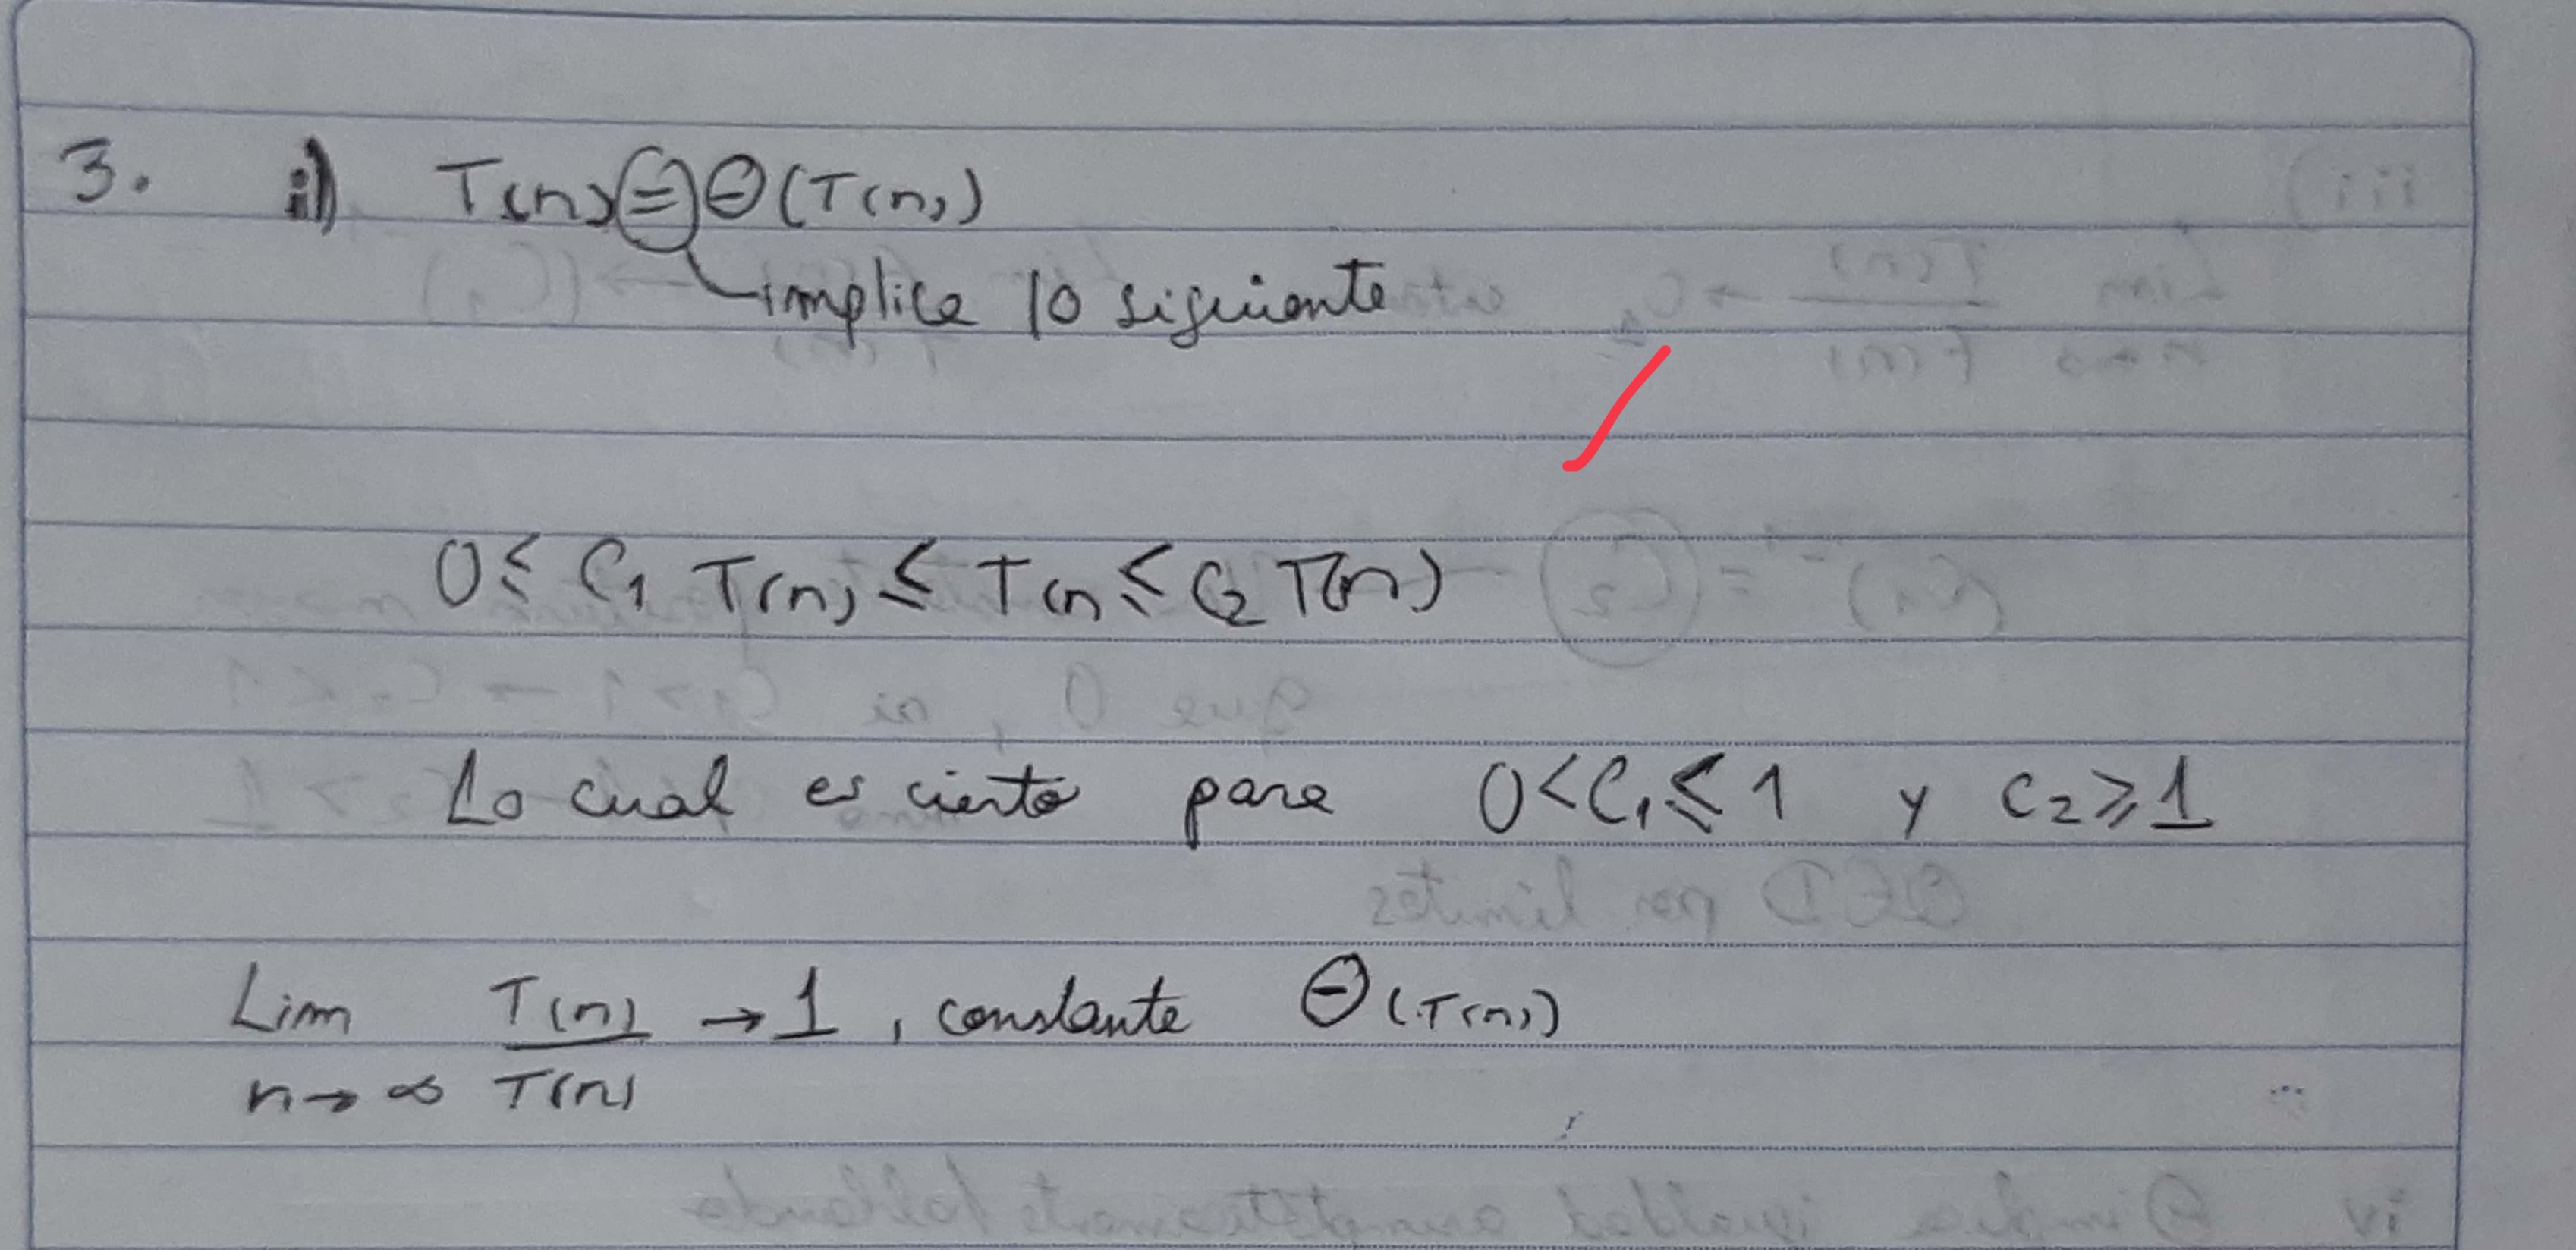 3. ii) T(n) = Θ(T(n))
implica lo siguiente
0 ≤ C₁ T(n) ≤ T(n ≤ C₂ T(n)
Lo cual es cierto para 0 < C₁ ≤ 1 y C₂ ≥ 1
Lim T(n) → 1, constante Θ(T(n))
n → ∞ T(n)